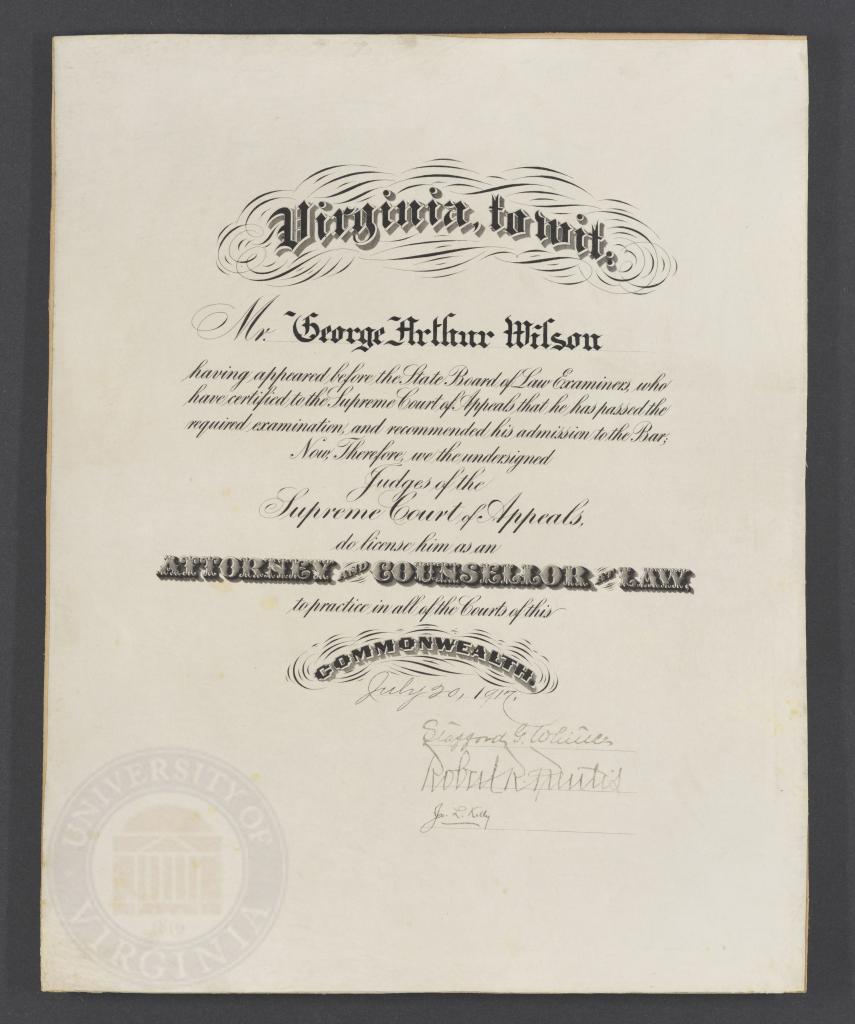 Virginia, to wit:
Mr. George Arthur Wilson
having appeared before the State Board of Law Examiners, who
have certified to the Supreme Court of Appeals that he has passed the
required examination, and recommended his admission to the Bar;
Now, Therefore, we the undersigned
Judges of the
Supreme Court of Appeals,
do license him as an
ATTORNEY AND COUNSELLOR AT LAW,
to practice in all of the Courts of this
COMMONWEALTH.
July 20, 1917.
Stafford G. Whittle
Robert R. Prentis
Jos. L. Kelly
UNIVERSITY OF VIRGINIA
1819